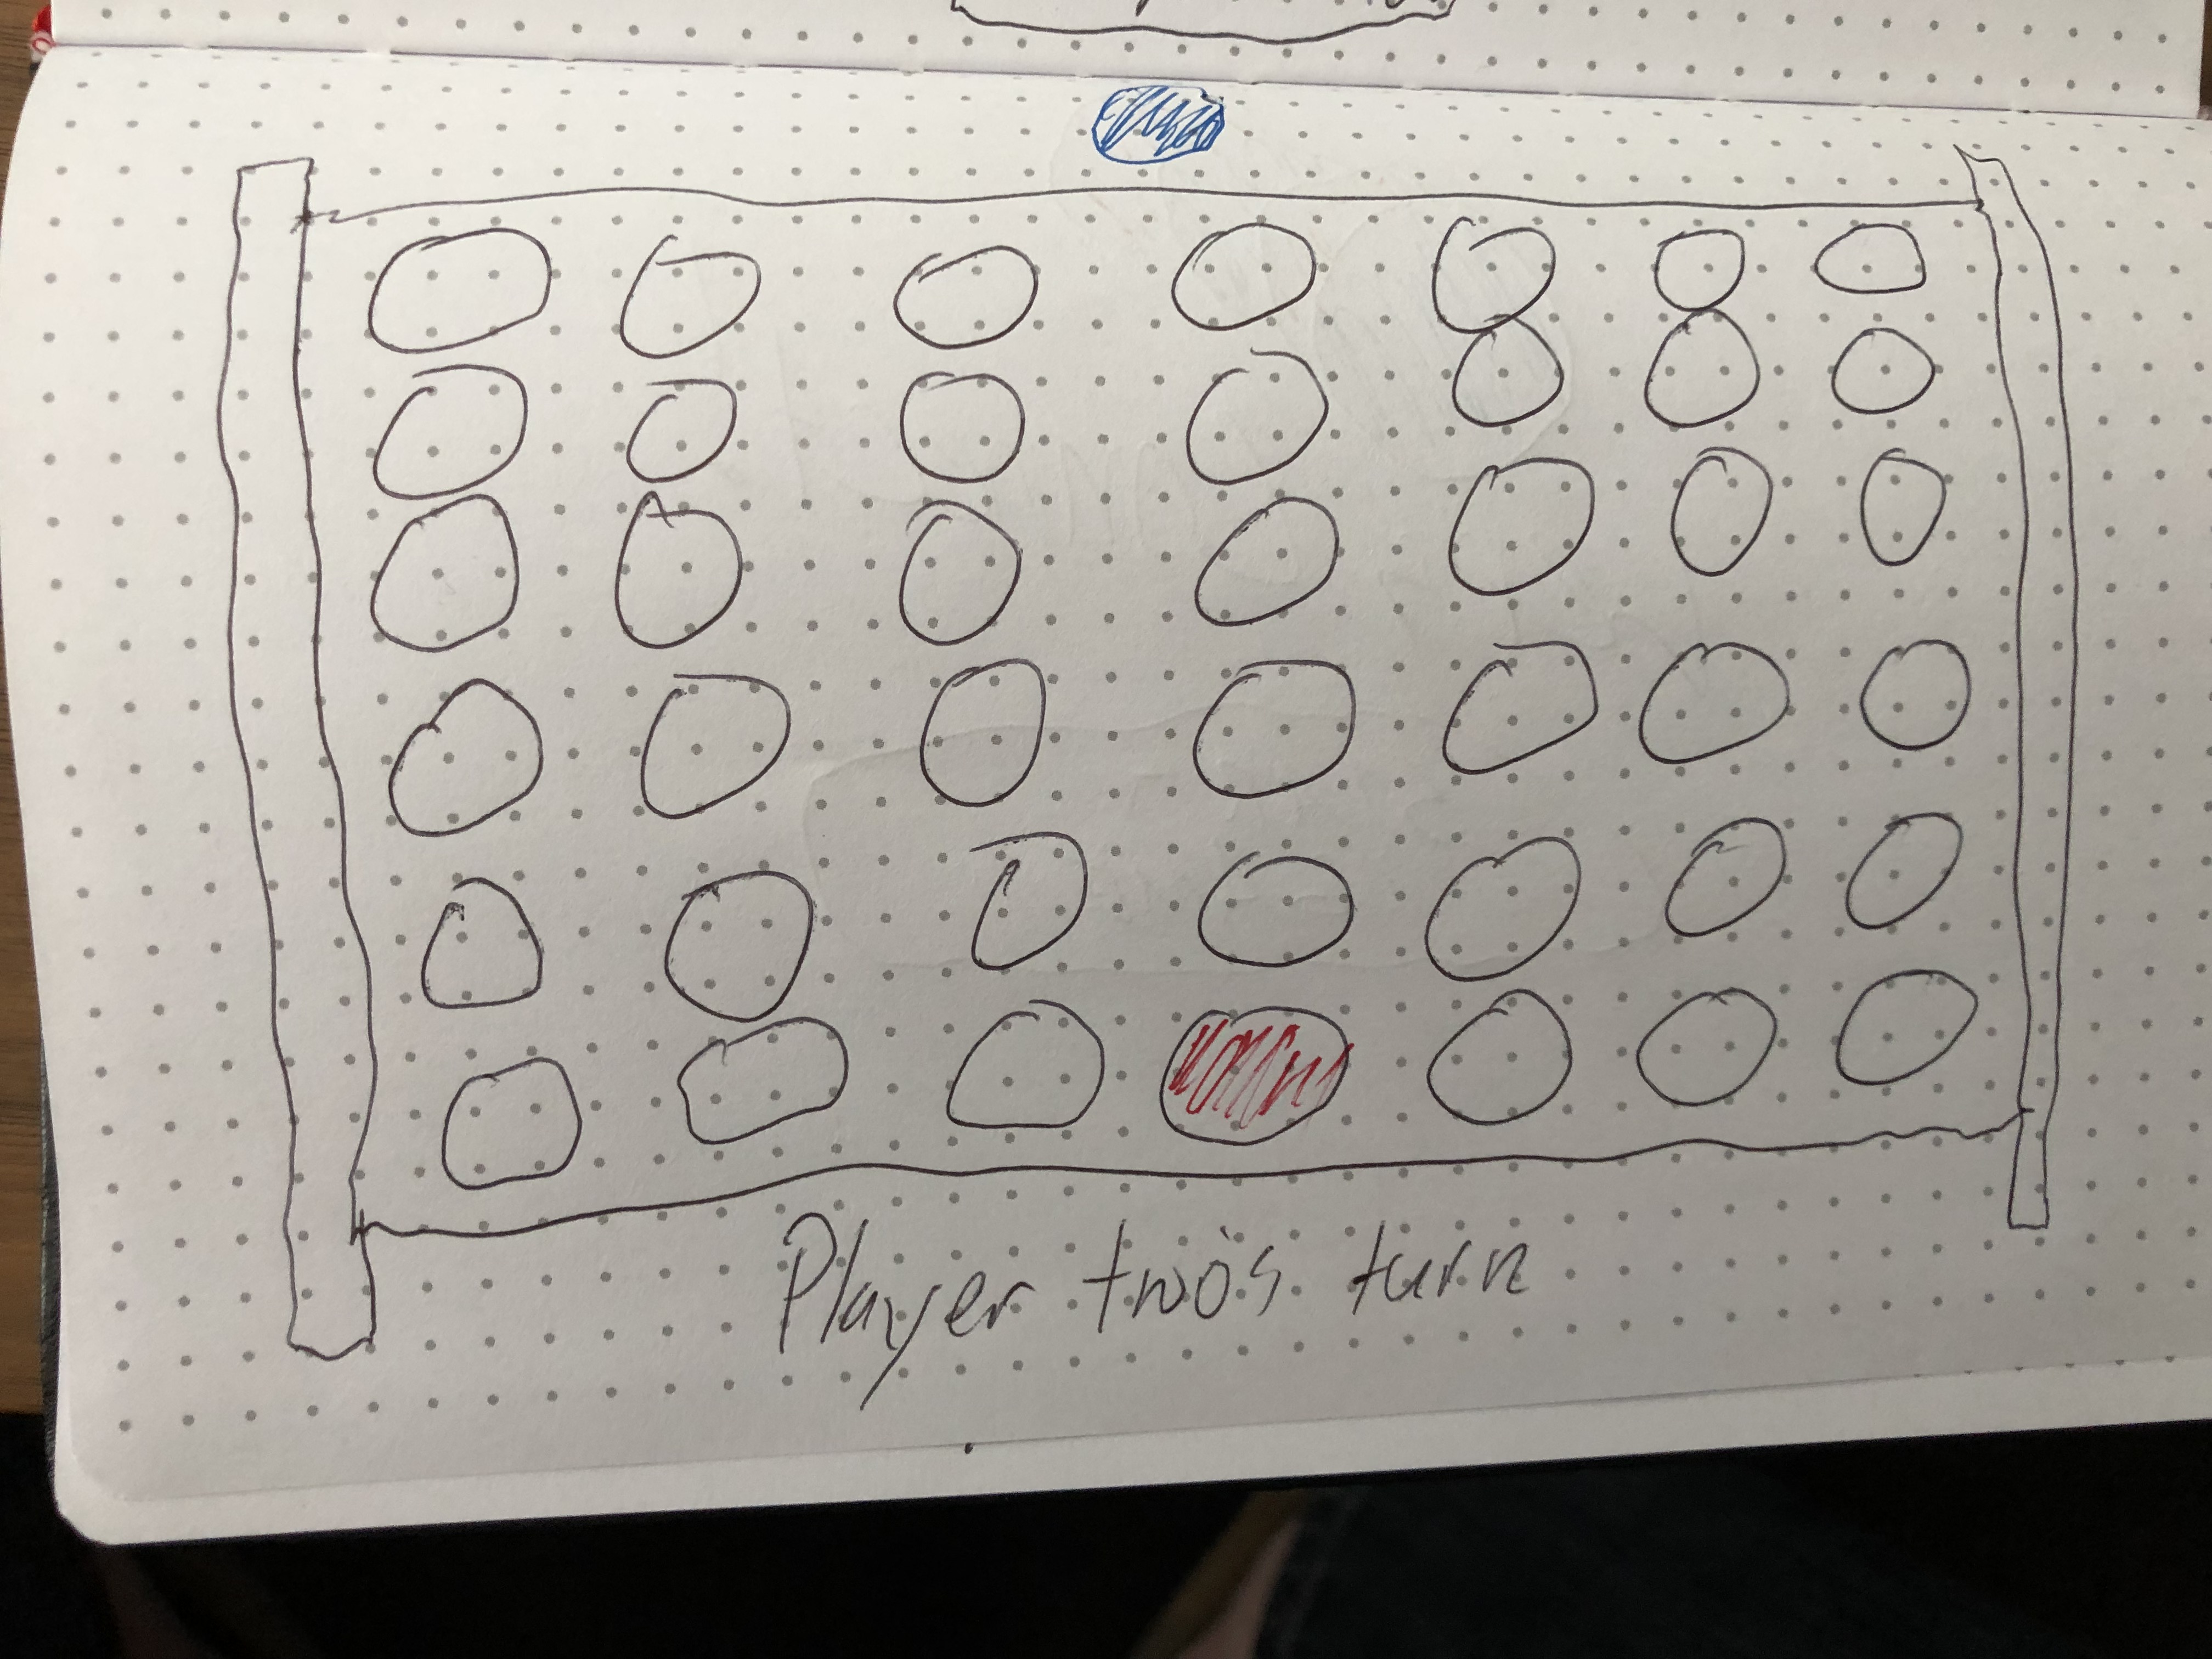 Player two's turn